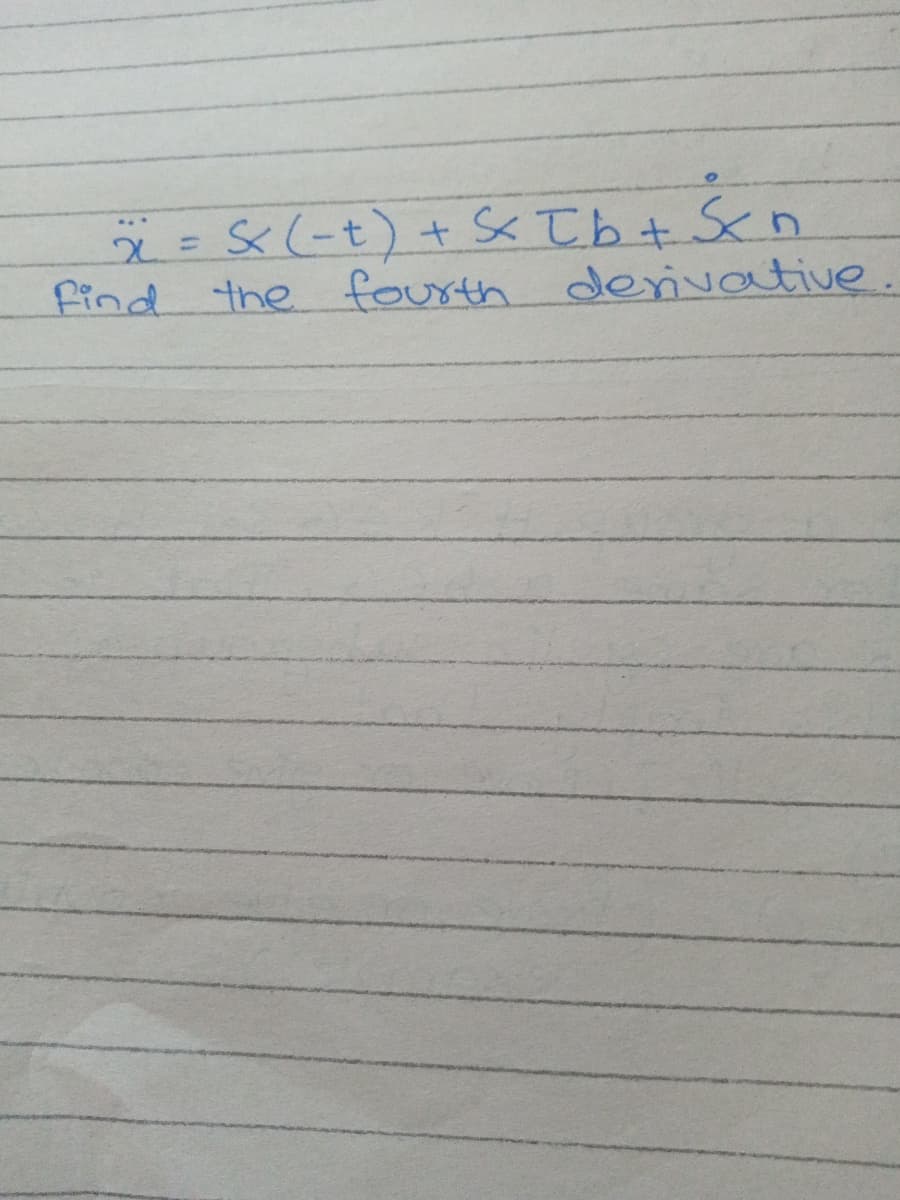 x⃛ = ϰ(-t) + ϰ τb + ϰ̇ n
Find the fourth derivative.